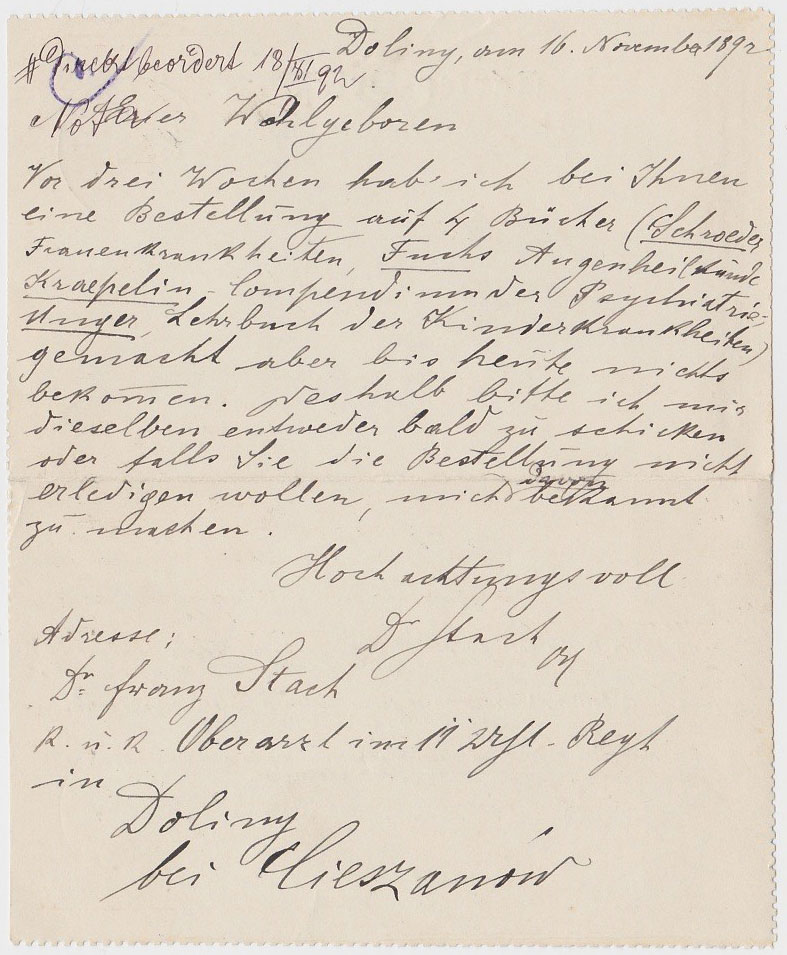 Doliny, am 16. November 1892
# Direkt beordert 18/XI 92.
Wohlgeboren
Vor drei Wochen hab ich bei Ihnen
eine Bestellung auf 4 Bücher (Schroeder
Frauenkrankheiten, Fuchs Augenheilkunde
Kraepelin - Compendium der Psychiatrie-
Unger, Lehrbuch der Kinderkrankheiten)
gemacht aber bis heute nichts
bekom̅en. Deshalb bitte ich mir
dieselben entweder bald zu schicken
oder falls Sie die Bestellung nicht
erledigen wollen, mich davon bekannt
zu machen.
Hochachtungsvoll
Dr Stach
Adresse:
Dr. Franz Stach
k. u. k. Oberarzt im 11 Regt
in
Doliny
bei Cieszanów